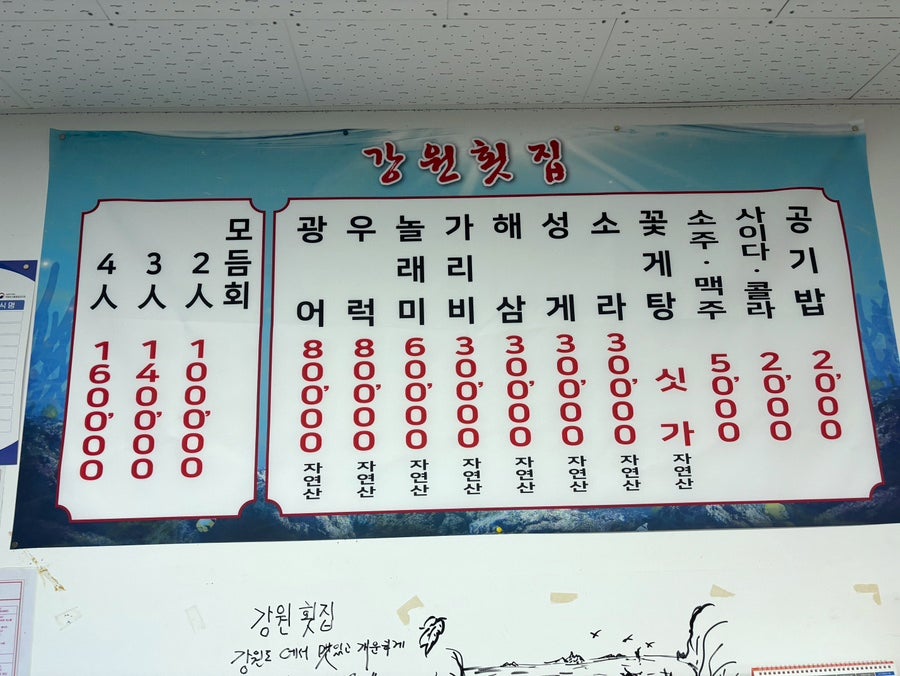 강원횟집
모듬회
2人 100,000
3人 140,000
4人 160,000
광어 80,000 자연산
우럭 80,000 자연산
놀래미 60,000 자연산
가리비 30,000 자연산
해삼 30,000 자연산
성게 30,000 자연산
소라 30,000 자연산
꽃게탕 싯가 자연산
소주·맥주 5,000
사이다·콜라 2,000
공기밥 2,000
강원횟집
강원도에서 맛있고 개운하게